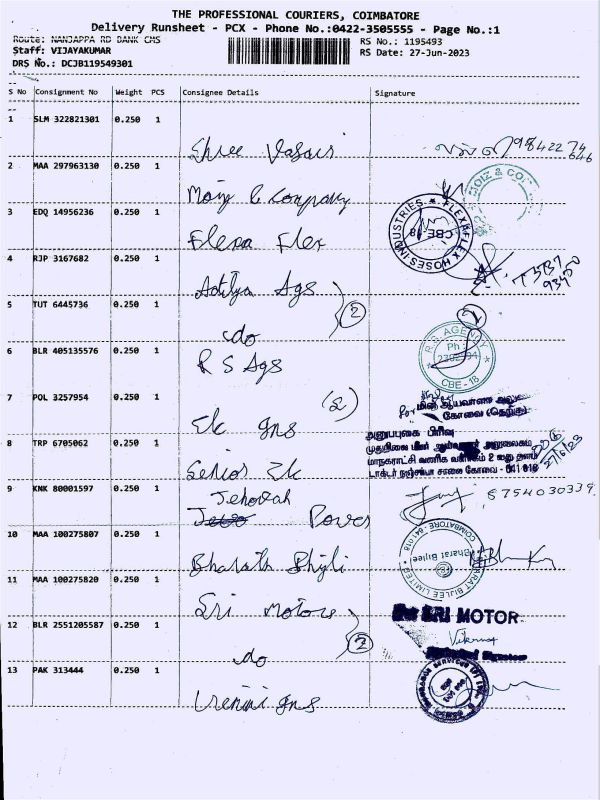 THE PROFESSIONAL COURIERS, COIMBATORE
Delivery Runsheet - PCX - Phone No.:0422-3505555 - Page No.:1
Route: NANJAPPA RD BANK CMS
RS No.: 1195493
Staff: VIJAYAKUMAR
RS Date: 27-Jun-2023
DRS No.: DCJB119549301
S No Consignment No Weight PCS Consignee Details Signature
1 SLM 322821301 0.250 1
Shree Vasavi
2 MAA 297963130 0.250 1
Moiz & Company
MOIZ & CO.
3 EDQ 14956236 0.250 1
Flexa Flex
FLEX FLEX HOSES INDUSTRIES
CBE-18
4 RJP 3167682 0.250 1
Aditya Ags
5 TUT 6445736 0.250 1
do
2
6 BLR 405135576 0.250 1
R S Ags
R.S. AGENCY
Ph :
CBE - 18
7 POL 3257954 0.250 1
(2)
Ek Gns
கோவை (தெற்கு)
8 TRP 6705062 0.250 1
Senior Ek
அனுப்புகை பிரிவு
டாக்டர் நஞ்சப்பா சாலை கோவை - 641 018
27/6/23
9 KNK 80001597 0.250 1
Jehovah
Power
8754030339
10 MAA 100275807 0.250 1
Bharath Bhjli
BHARAT BIJLEE LIMITED
COIMBATORE - 641 018
Bharat Bijlee
11 MAA 100275820 0.250 1
Sri Motors
SRI MOTOR
12 BLR 2551205587 0.250 1
do
2
13 PAK 313444 0.250 1